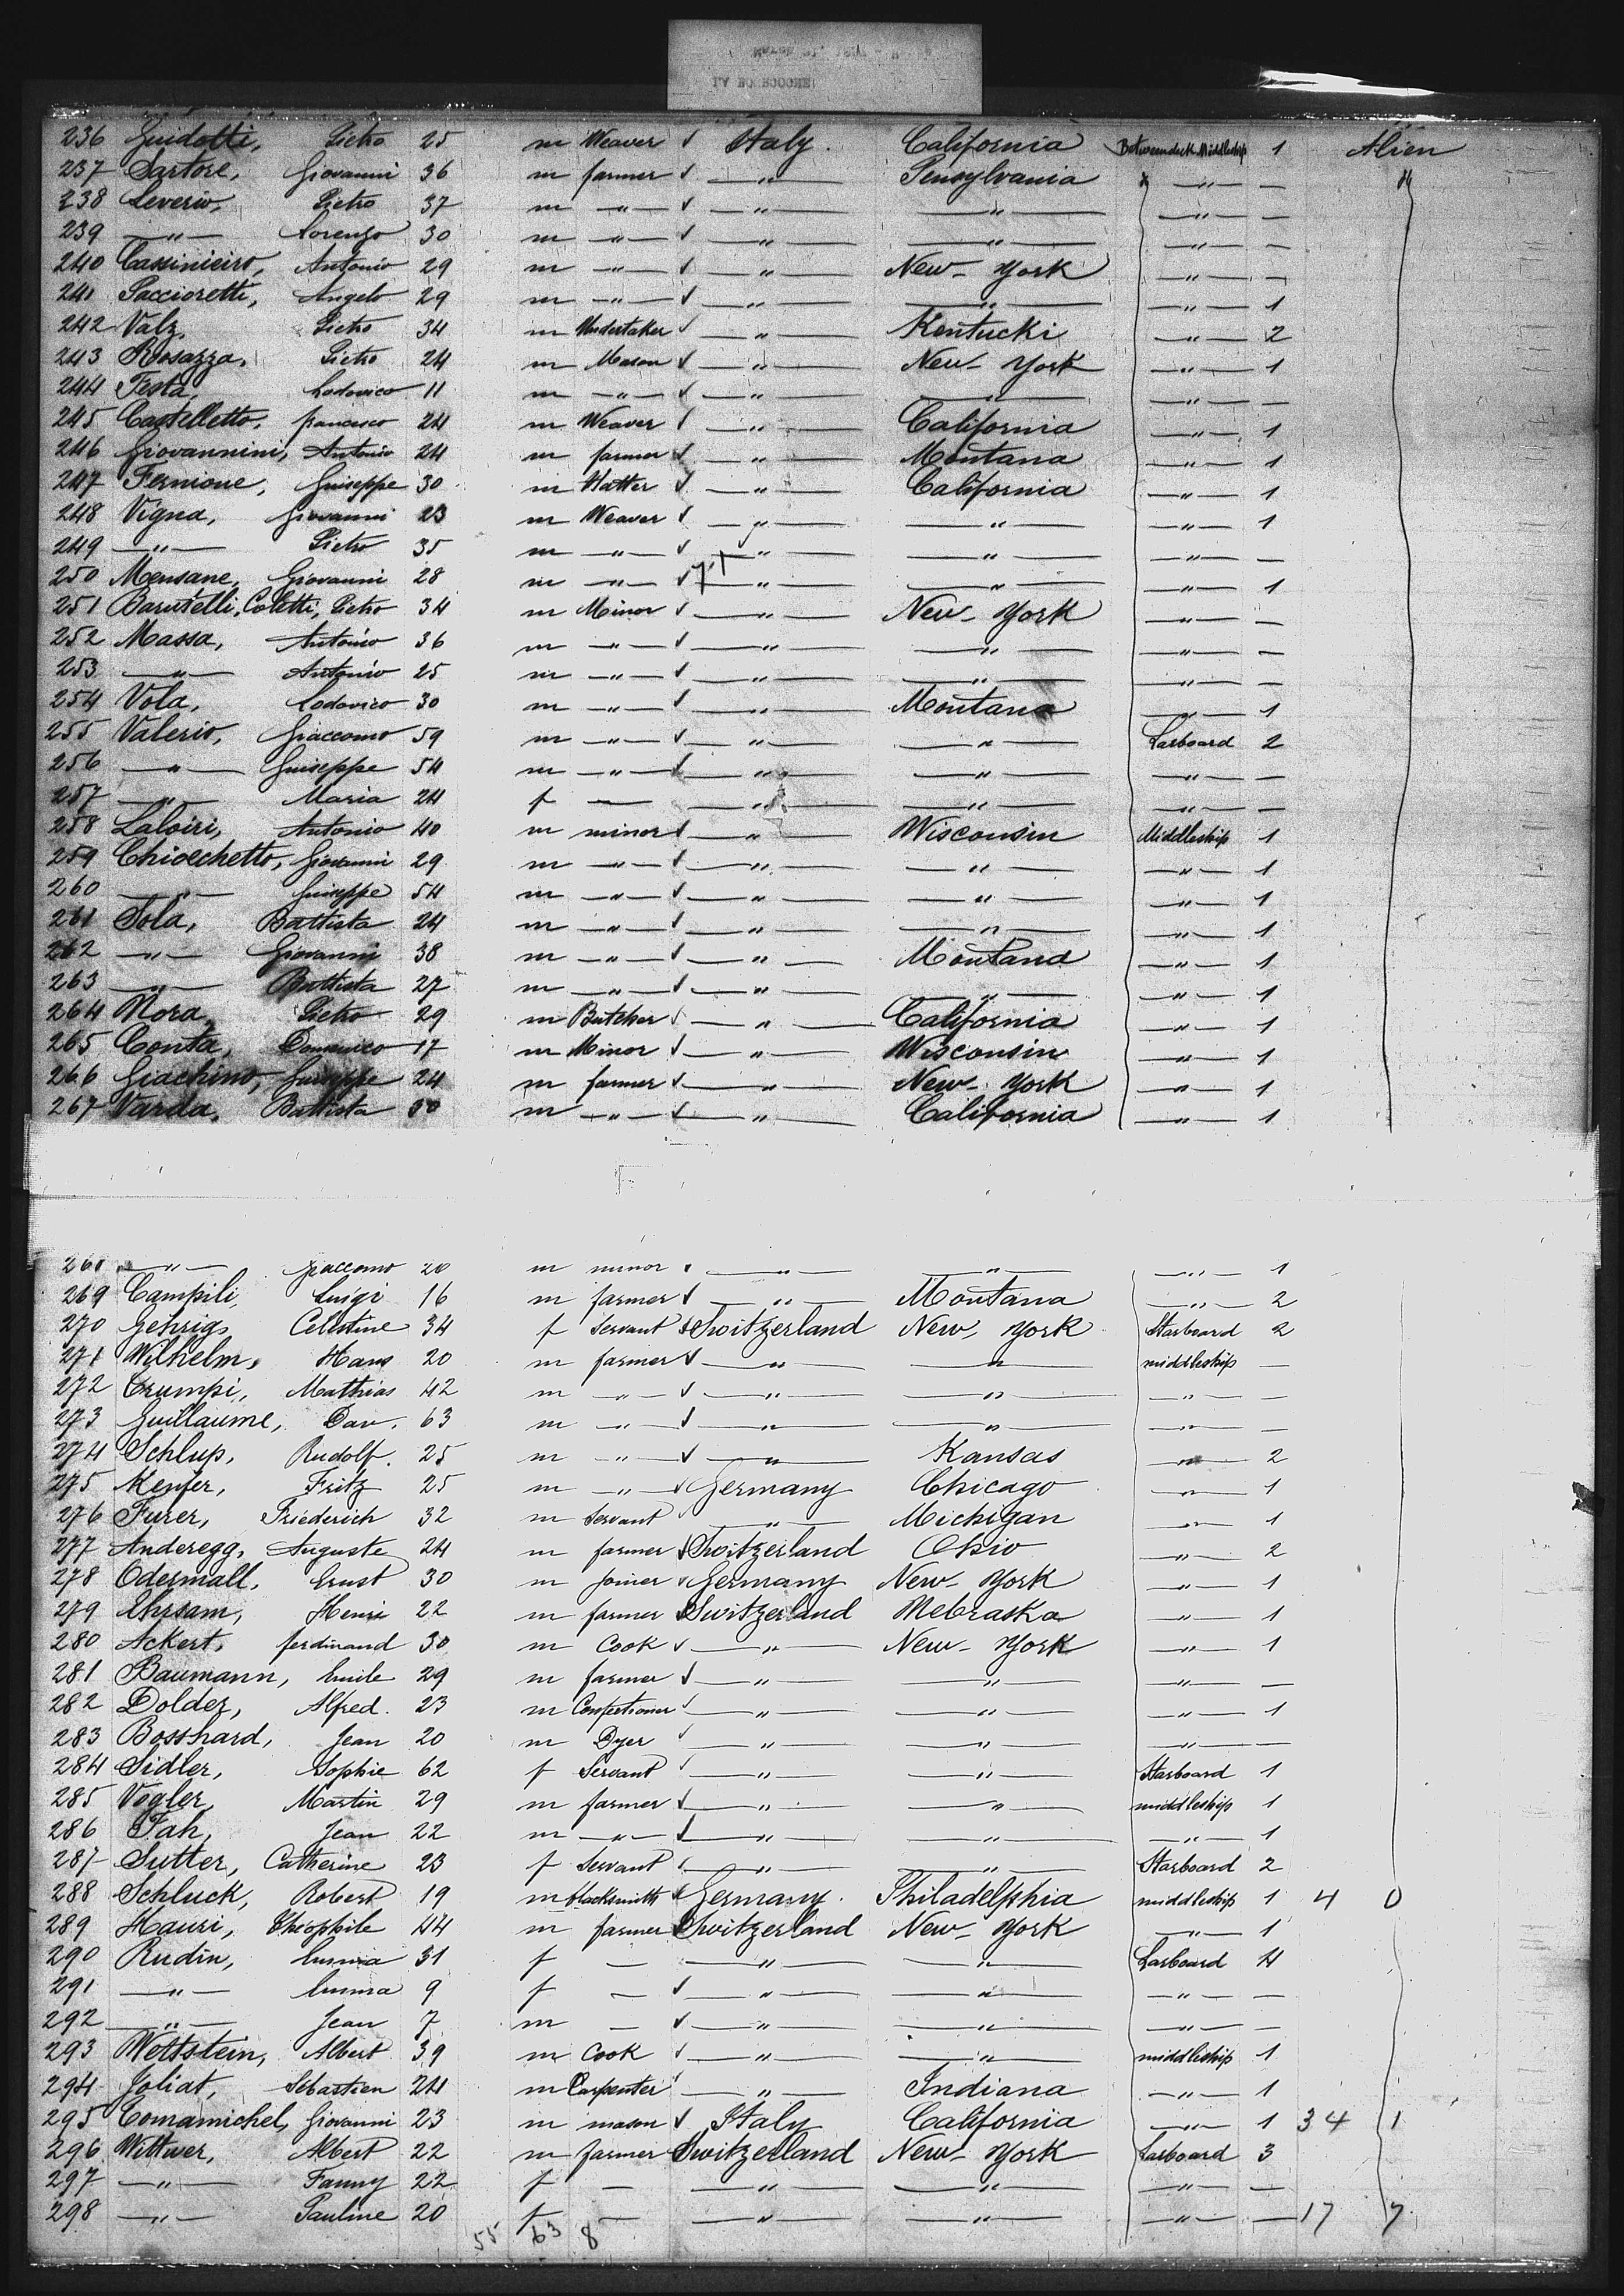 236 Guidotti, Pietro 25 m Weaver √ Italy. California Betweendeck Middleship 1 Alien
237 Sartore, Giovanni 36 m farmer √ —"— Pensylvania —"— —
238 Severio, Pietro 37 m —"— √ —"— —"— —"— —
239 —"— Lorenzo 30 m —"— √ —"— —"— —"— —
240 Cassinieiro, Antonio 29 m —"— √ —"— New-York —"— —
241 Paccioretti, Angelo 29 m —"— √ —"— —"— —"— 1
242 Valz, Pietro 34 m Undertaker √ —"— Kentucki —"— 2
243 Rosazza, Pietro 24 m Mason √ —"— New-York —"— 1
244 Festa, Lodovico 11 m —"— √ —"— —"— —"— —
245 Castelletto, francesco 24 m Weaver √ —"— California —"— 1
246 Giovannini, Antonio 24 m farmer √ —"— Montana —"— 1
247 Fernione, Guiseppe 30 m Hatter √ —"— California —"— 1
248 Vigna, Giovanni 23 m Weaver √ —"— —"— —"— 1
249 —"— Pietro 35 m —"— √ —"— —"— —"— —
250 Mensane, Giovanni 28 m —"— √ —"— —"— —"— 1
251 Barutelli, Coletti, Pietro 34 m Minor √ —"— New-York —"— —
252 Massa, Antonio 36 m —"— √ —"— —"— —"— —
253 —"— Antonio 25 m —"— √ —"— —"— —"— —
254 Vola, Lodovico 30 m —"— √ —"— Montana —"— 1
255 Valerio, Giaccomo 59 m —"— √ —"— —"— Larboard 2
256 —"— Guiseppe 54 m —"— √ —"— —"— —"— —
257 —"— Maria 24 f — —"— —"— —"— —
258 Laloiri, Antonio 40 m minor √ —"— Wisconsin Middleship 1
259 Chiocchetto, Giovanni 29 m —"— √ —"— —"— —"— 1
260 —"— Guiseppe 54 m —"— √ —"— —"— —"— 1
261 Sola, Battista 24 m —"— √ —"— —"— —"— 1
262 —"— Giovanni 38 m —"— √ —"— Montana —"— 1
263 —"— Battista 27 m —"— √ —"— —"— —"— 1
264 Nora, Pietro 29 m Butcher √ —"— California —"— 1
265 Conta, Domenico 17 m Minor √ —"— Wisconsin —"— 1
266 Giachino, Guiseppe 24 m farmer √ —"— New-York —"— 1
267 Varda, Battista m —"— √ —"— California —"— 1
268 —"— Giaccomo 20 m minor —"— —"— —"— 1
269 Campili, Luigi 16 m farmer √ —"— Montana —"— 2
270 Gehrig, Celestine 34 f Servant √ Switzerland New-York Starboard 2
271 Wilhelm, Hans 20 m farmer √ —"— —"— middleship —
272 Crumpi, Mathias 42 m —"— √ —"— —"— —"— —
273 Guillaume, Dav. 63 m —"— √ —"— —"— —"— —
274 Schlup, Rudolf. 25 m —"— √ —"— Kansas —"— 2
275 Menfer, Fritz 25 m —"— √ Germany Chicago —"— 1
276 Furer, Friederich 32 m Servant √ —"— Michigan —"— 1
277 Anderegg, Auguste 24 m farmer √ Switzerland Ohio —"— 2
278 Odermall, Ernst 30 m joiner √ Germany New-York —"— 1
279 Ehrsam, Henri 22 m farmer √ Switzerland Nebraska —"— 1
280 Ackert, ferdinand 30 m Cook √ —"— New-York —"— 1
281 Baumann, Emile 29 m farmer √ —"— —"— —"— —
282 Dolder, Alfred. 23 m Confectioner √ —"— —"— —"— 1
283 Bosshard, Jean 20 m Dyer √ —"— —"— —"— —
284 Sidler, Sophie 62 f Servant √ —"— —"— Starboard 1
285 Vogler, Martin 29 m farmer √ —"— —"— middleship 1
286 Fah, Jean 22 m —"— √ —"— —"— —"— 1
287 Sutter, Catherine 23 f Servant √ —"— —"— Starboard 2
288 Schluck, Robert 19 m blacksmith √ Germany. Philadelphia middleship 1 4 0
289 Hauri, Théophile 44 m farmer √ Switzerland New-York —"— 1
290 Rudin, Emma 31 f — —"— —"— Larboard 4
291 —"— Emma 9 f — √ —"— —"— —"— —
292 —"— Jean 7 m — √ —"— —"— —"— —
293 Wettstein, Albert 39 m Cook √ —"— —"— middleship 1
294 Joliat, Sébastien 24 m Carpenter √ —"— Indiana —"— 1
295 Comamichel, Giovanni 23 m mason √ Italy California —"— 1 34 1
296 Wittwer, Albert 22 m farmer Switzerland New-York Larboard 3
297 —"— Fanny 22 f — —"— —"— —"— —
298 —"— Pauline 20 f — —"— —"— —"— — 17 7
55 63 8